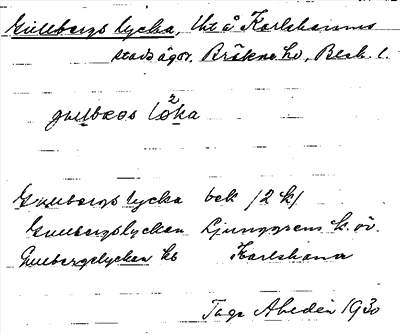 Gullbergs lycka, Uht å Karlshamns
stads ägor. Bräkne hd, Blek. l.
gulbæs løka
2
Gullbergs lycka bek /2 k/
Gullbergslyckan Ljunggrens k. öv.
Gullbergslyckan hs Karlshamn
Tage Ahldén 1930